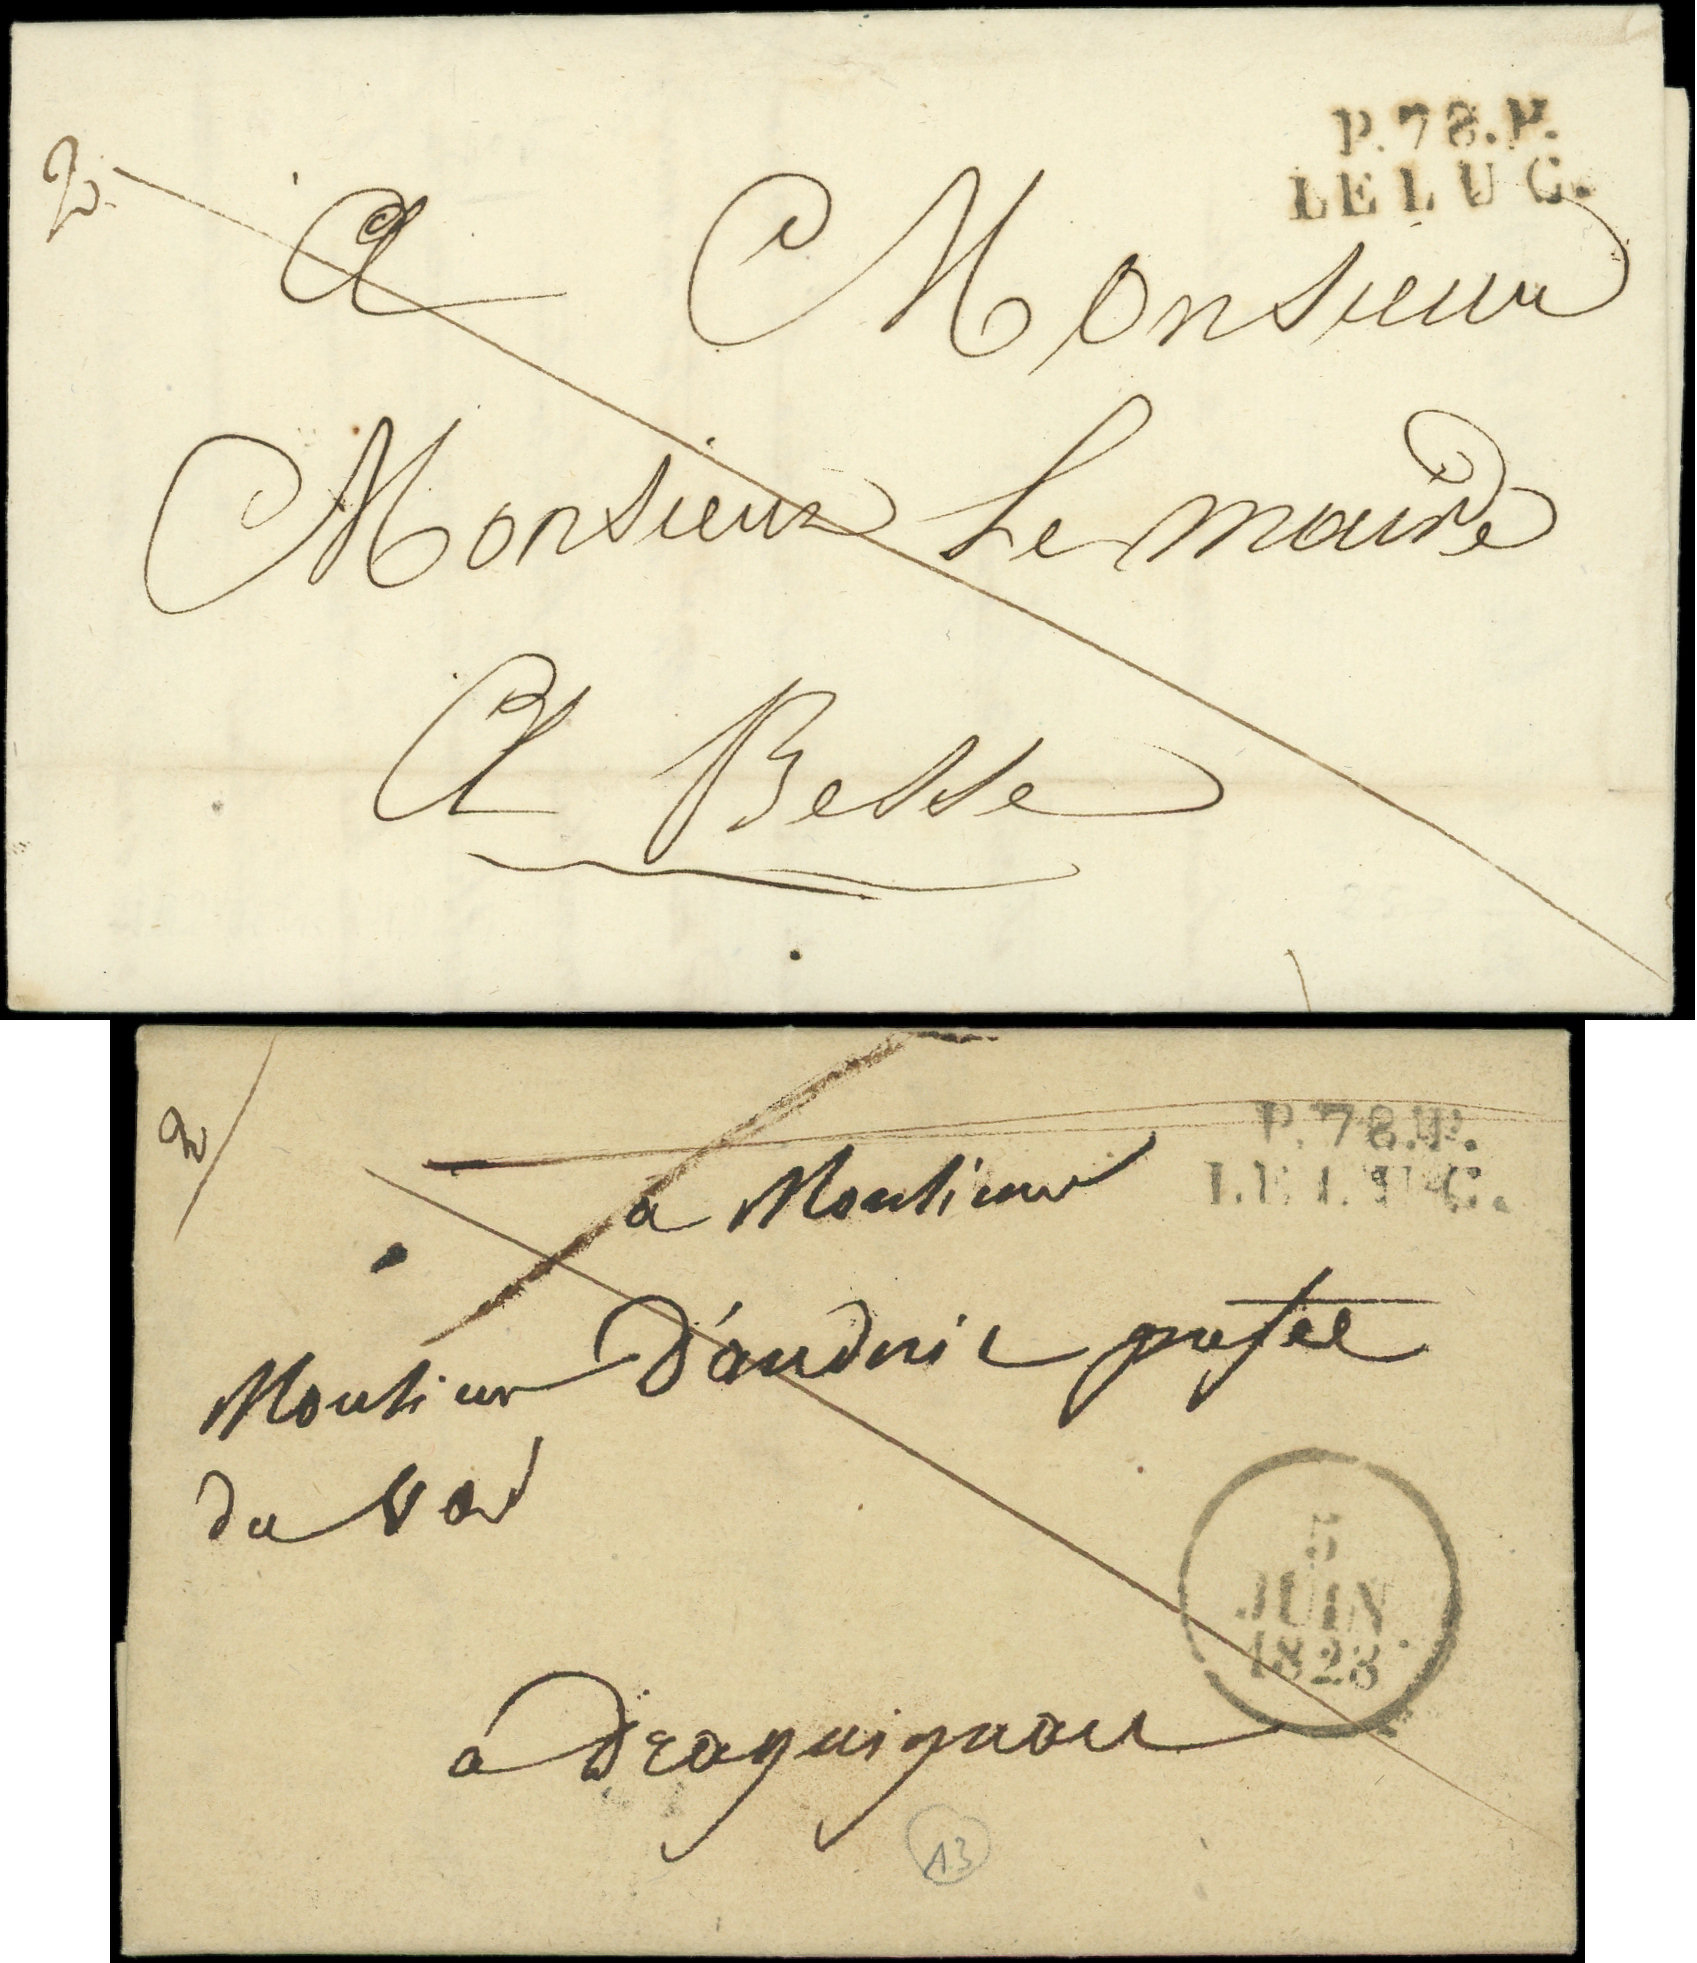 P.78.P.
LE LUC.
2
A Monsieur
Monsieur Le maire
A Besse
P.78.P.
LE LUC.
2
a Monsieur
Monsieur D'auderic prefet
du var
5
JUIN
1828
à Draguignan
13